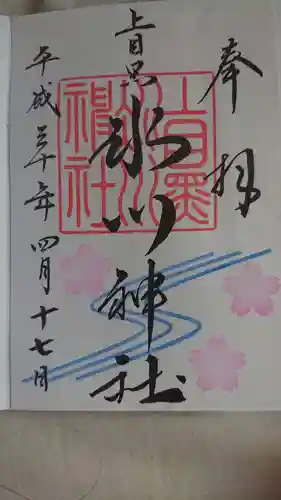 奉拝
上目黒
氷川神社
平成三十年四月十七日
上目黒
氷川
神社